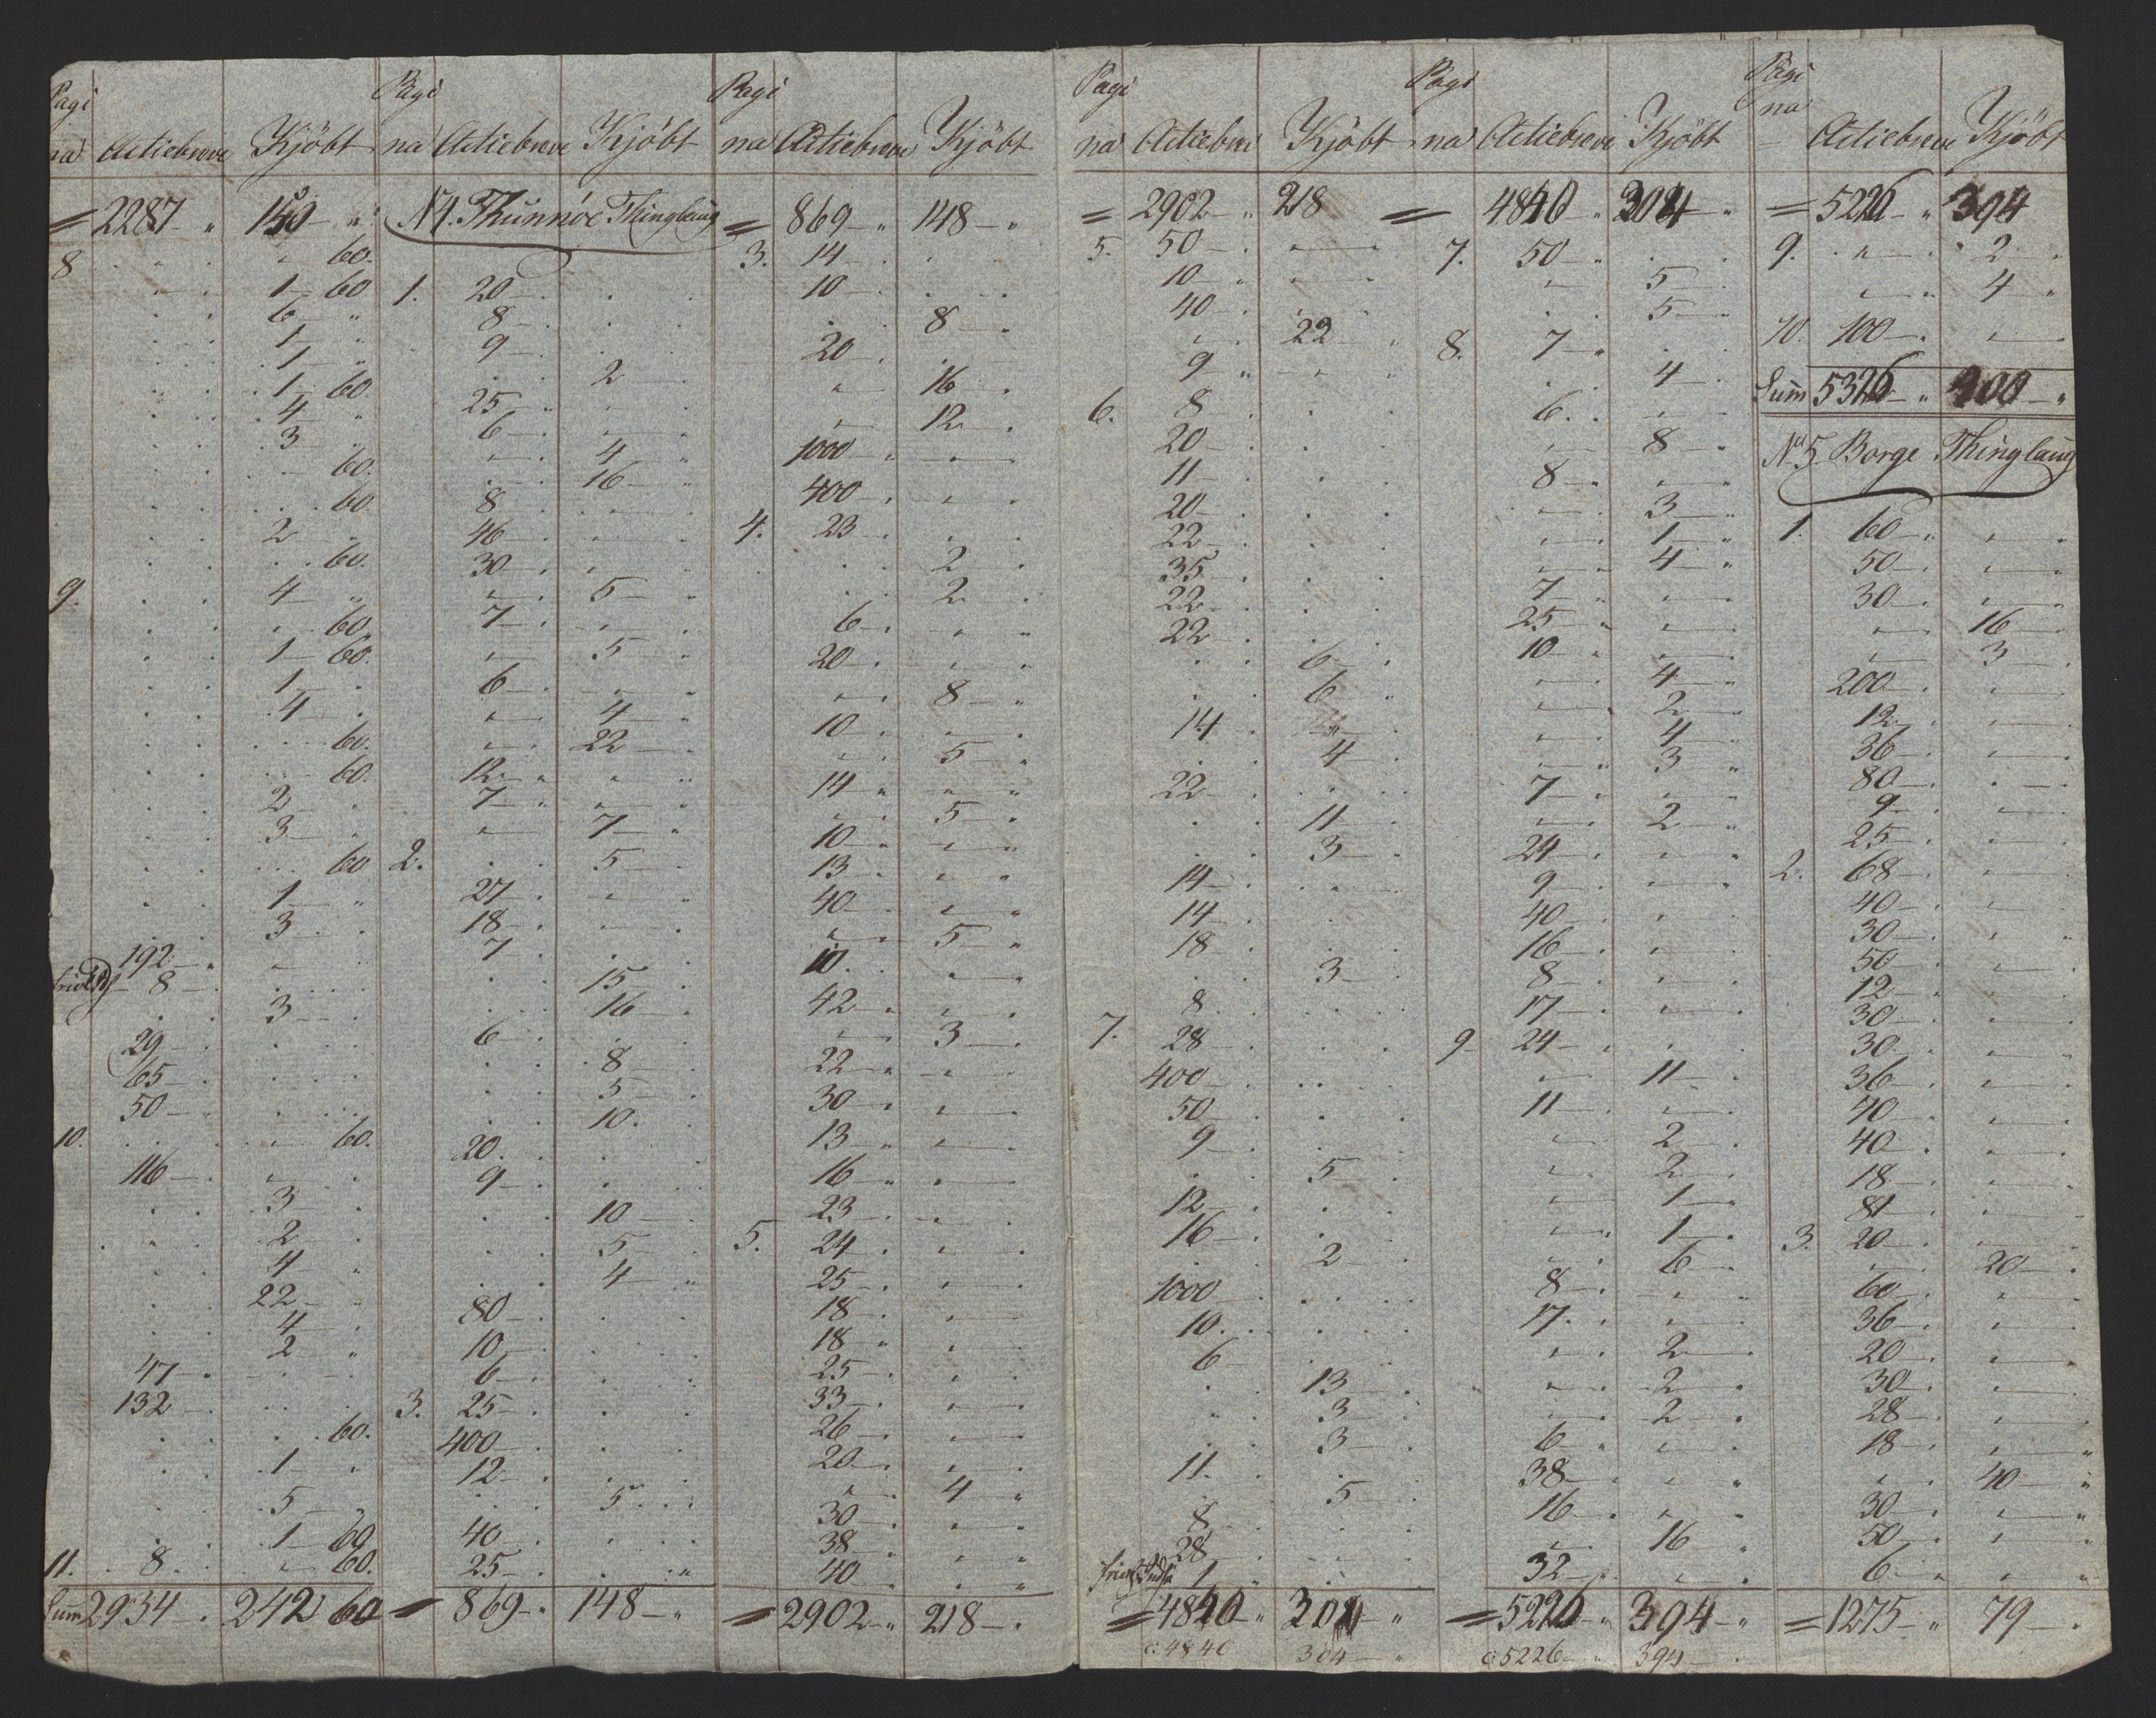 Pagi
na Actiebreve Kjöbt
= 2287 150
8 60.
1 60
6
1
1
1 60.
4
3
60.
60
2
60.
9. 4
60
1 60.
1
4
60.
60.
2
3
60
1
3
192
8
3
29
65
50
10. 60.
116
3
2
4
22
4
2
47
132
60.
1
5
1 60
11. 8 60.
Sum 2934 242 60
Pagi
na Actiebreve Kjöbt
No 4. Thunnöe Thinglaug
1. 20
8
9
2
25
6
4
16
8
46
30
5
7
5
6
4
22
12
7
7
2. 5
27
18
7
15
16
6
8
5
10.
20
9
10
5
4
80
10
6
3. 25
400
12
5
40
25
= 869 148
Pagi
na Actiebreve Kjöbt
= 869 148
3. 14
10
8
20
16
12
1000
400
4. 23
2
2
6
20
8
10
5
14
5
10
13
40
5
10
42
3
22
30
13
16
23
5. 24
25
18
18
25
33
26
20
4
30
38
40
= 2902 218
Pagi
na Actiebrev Kjöbt
= 2902 218
5. 50
10
40
22
9
6. 8
20
11
20
22
35
22
22
6
6
14
4
22
11
3
14
14
18
3
8
7. 28
400
50
9
5
12
16
2
1000
10.
6
13
3
3
11.
5
8
28
1
= 4840 304
c: 4840 304
Pagi
na Actiebreve Kjöbt
= 4840 304
7. 50
5
5
8. 7
4
6
8
8
3
1
4
7
25
10
4
2
4
3
7
2
24
9
40
16
8
17
9 24
11
11
2
2
1
1
6
8
17
2
2
2
6
38
16
16
32
= 5226 394
c 5226 394
Pagi
na Actiebreve Kjöbt
= 5226 394
9. 2
4
10. 100
Sum 5326 400
No 5. Borge Thinglaug
1. 60
50
30
16
3
200
12
36
80
9
25
2. 68
40
30
50
12
30
30
36
40
40
18
81
3. 20
20
60
36
20
30
28
18
40
30
50
6
= 1275 79